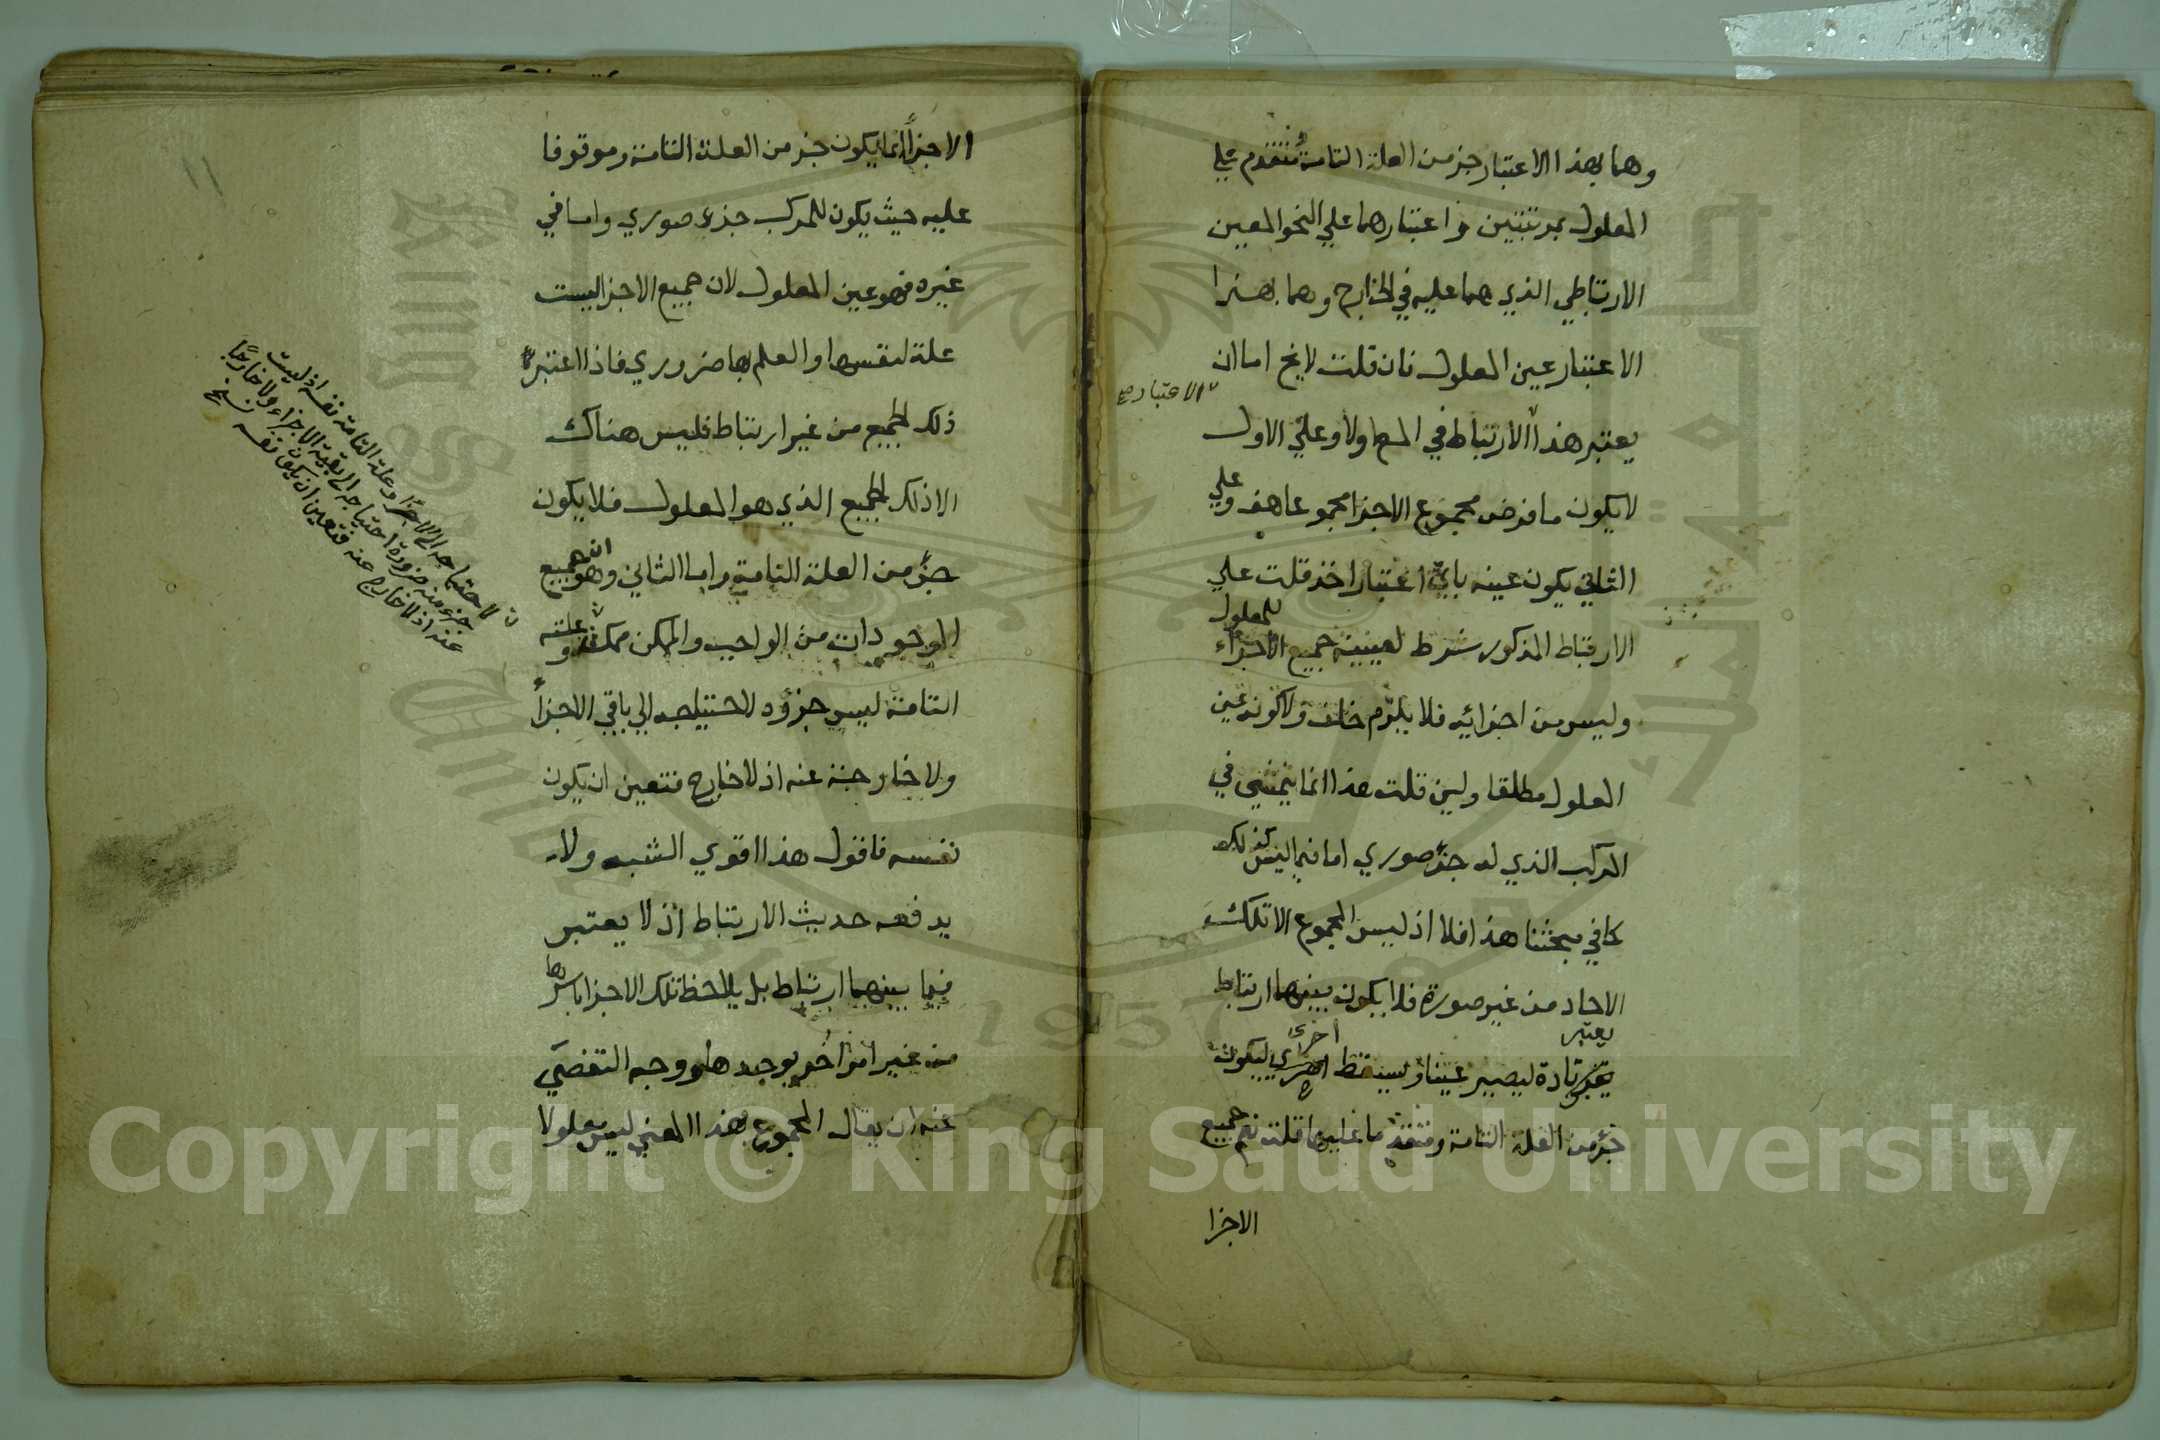 وهما بهذا الاعتبار جز من العلة التامة متقدم علي
المعلول بمرتبتين واعتبارهما علي النحو المعين
الارتباطي الذي هما عليه في الخارج وهما بهذا
الاعتبار عين المعلول فان قلت لايخ اما ان
الاعتبار صح
يعتبر هذا الارتباط في المـع اولا وعلي الاول
لايكون ما فرض مجموع الاجزا مجموعا هف وعلي
الثاني يكون عينه باي اعتبار اخذ قلت علي
الارتباط المذكور شرط لعينية جميع الاجزاء للمعلول
وليس من اجزائه فلا يلزم خلف ولا كونه عين
المعلول مطلقا ولين قلت هذا انما يتمشي في
المركب الذي له جزء صوري اما فيما ليس كذلك
كما في مبحثنا هذا فلا اذ ليس المجموع الا تلك
الاحاد من غير صورة فلا يكون بينهما ارتباط
يعتبر تارة ليصير عينا ويسقط اخري ليكون
جزء من العلة التامة ومتقدما عليها قلت نعم جميع
الاجزا
الاجزاء انما يكون جز من العلة التامة وموقوفا
عليه حيث يكون للمركب جزء صوري واما في
غيره فهو عين المعلول لان جميع الاجزا ليست
علة لنفسها والعلم بها ضروري فاذا اعتبر
ذلك الجميع من غير ارتباط فليس هناك
الا ذلك الجميع الذي هو المعلول فلا يكون
جزء من العلة التامة واما الثاني وهو ان جميع
الموجودات من الواجب والممكن ممكن وعلته
التامة ليس جزؤه لاحتياجه الي باقي الاجزاء
ولا خارجة عنه اذ لا خارج فتعين ان يكون
نفسه فاقول هذا اقوي الشبه ولا
يدفعه حديث الارتباط اذ لا يعتبر
فيما بينهما ارتباط بل يلاحظ تلك الاجزا باسرها
من غير امر اخر يوجدها ووجه التفصي
عنه ان يقال المجموع بهذا المعني ليس معلولا
لاحتياجه الي الاجزاء وعلة التامة نفسه اذ ليست
جزء منه ضرورة احتياجه الي بقية الاجزاء ولا خارجا
عنه اذ لا خارج عنه فتعين ان يكون نفسه نسخ
١١
Copyright © King Saud University
1957